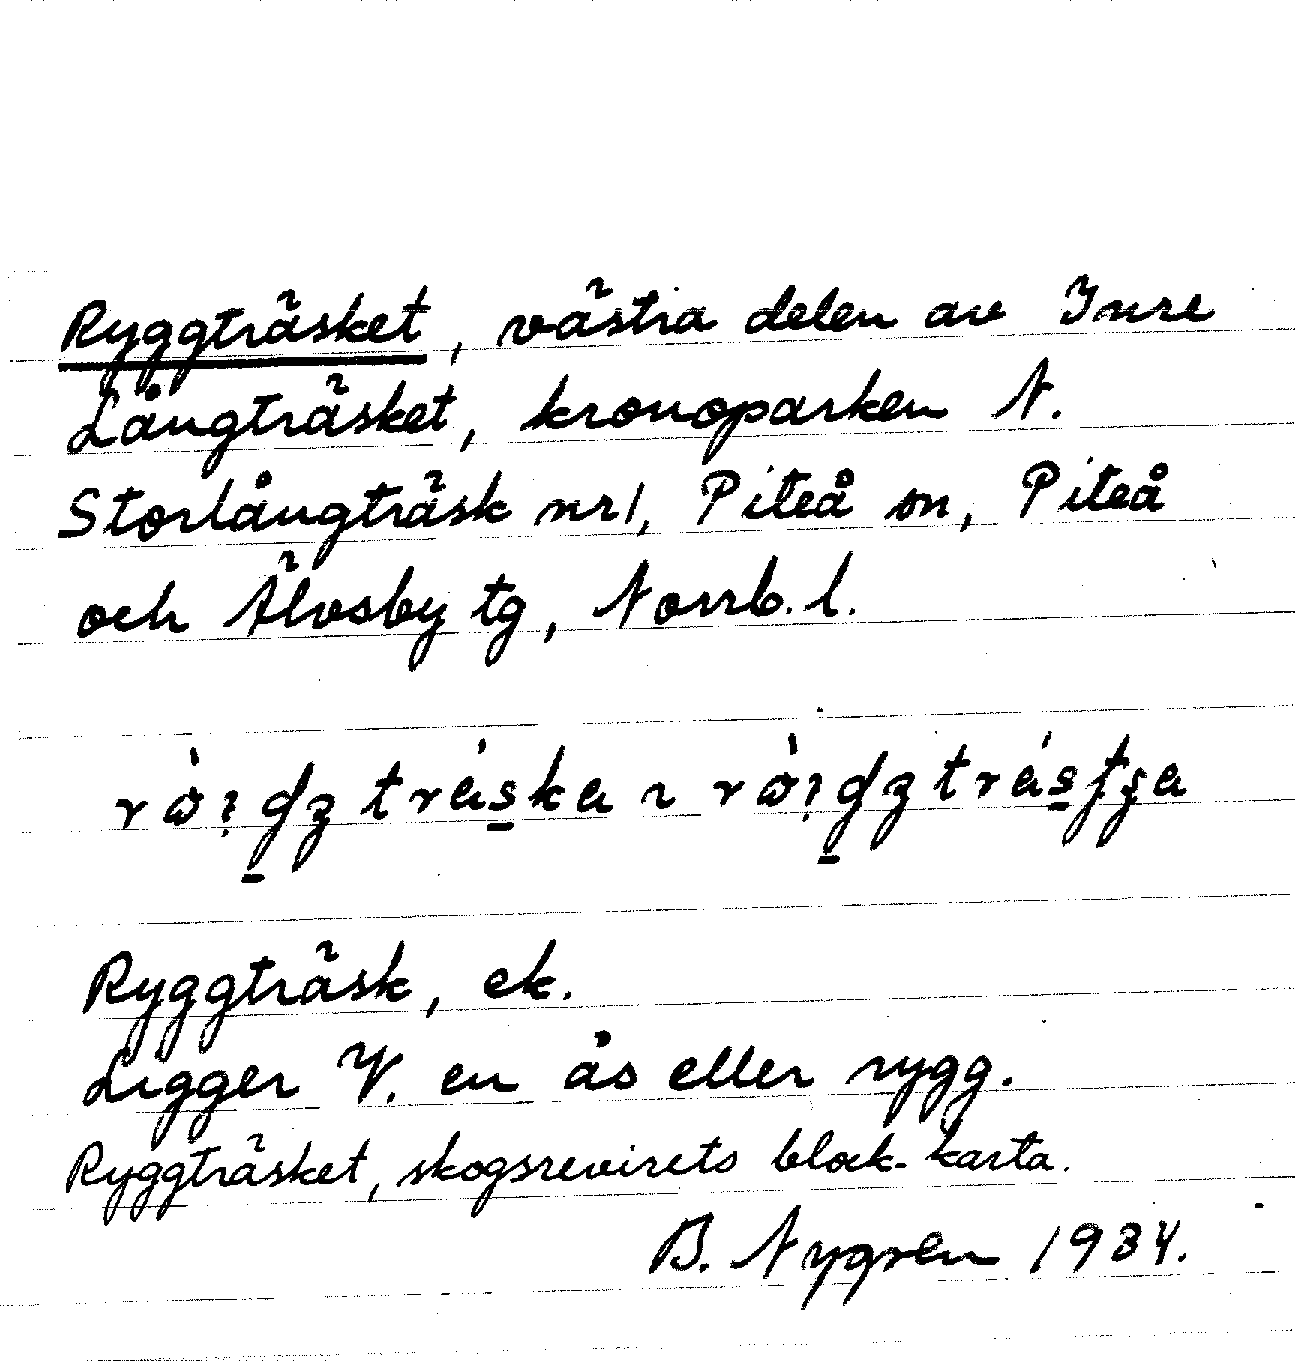 Ryggträsket, västra delen av Inre
Långträsket, kronoparken N.
Storlångträsk nr 1, Piteå sn, Piteå
och Älvsby tg, Norrb. l.
Ryggträsk, ek.
Ligger V. en ås eller rygg.
Ryggträsket, skogsrevirets block-karta.
B. Nygren 1934.